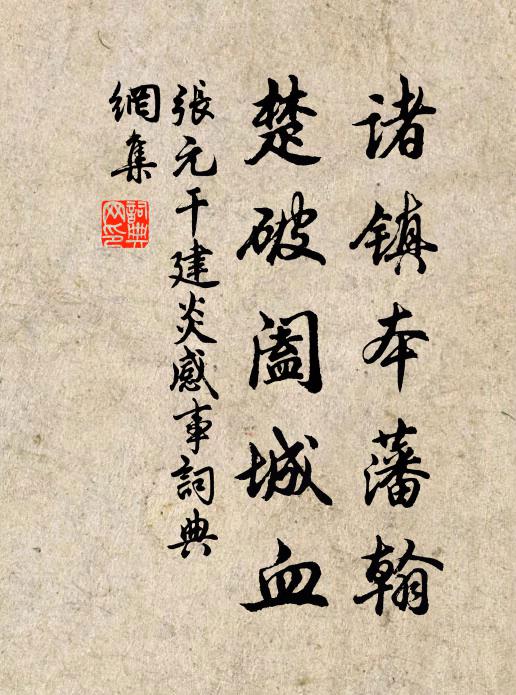 诸镇本藩翰
楚破阖城血
張元干建炎感事詞典
網集
詞典
网印